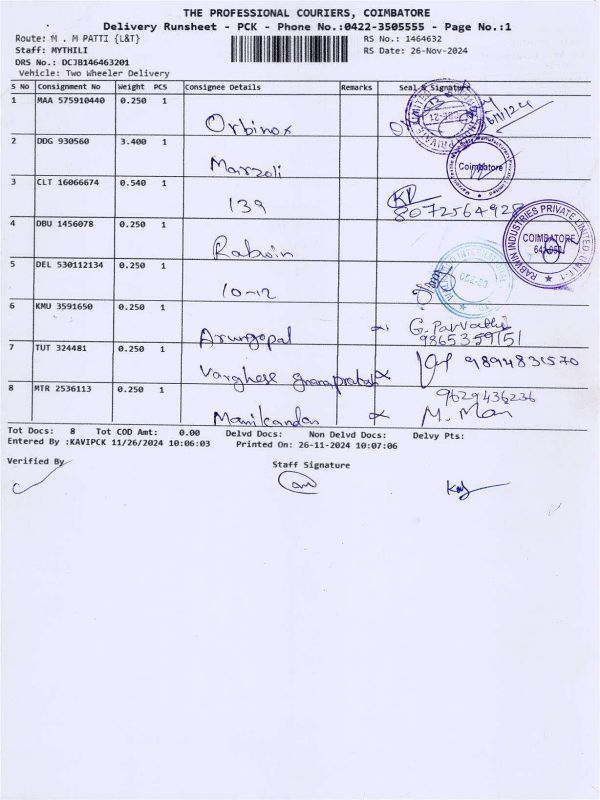 THE PROFESSIONAL COURIERS, COIMBATORE
Delivery Runsheet - PCK - Phone No.:0422-3505555 - Page No.:1
Route: M . M PATTI {L&T}
RS No.: 1464632
Staff: MYTHILI
RS Date: 26-Nov-2024
DRS No.: DCJB146463201
Vehicle: Two Wheeler Delivery
S No Consignment No Weight PCS Consignee Details Remarks Seal & Signature
1 MAA 575910440 0.250 1
Orbinox
2 DDG 930560 3.400 1
Marzoli
Coimbatore
3 CLT 16066674 0.540 1
139
8072564928
4 DBU 1456078 0.250 1
Rabwin
RABWIN INDUSTRIES PRIVATE LIMITED UNIT-1
COIMBATORE
5 DEL 530112134 0.250 1
10-12
6 KMU 3591650 0.250 1
Arungopal
G. Parvathi
9865359151
7 TUT 324481 0.250 1
Varghese gnanaprakash
9894831570
8 MTR 2536113 0.250 1
Manikandan
9629436236
M. Man
Tot Docs: 8 Tot COD Amt: 0.00 Delvd Docs: Non Delvd Docs: Delvy Pts:
Entered By :KAVIPCK 11/26/2024 10:06:03 Printed On: 26-11-2024 10:07:06
Verified By
Staff Signature